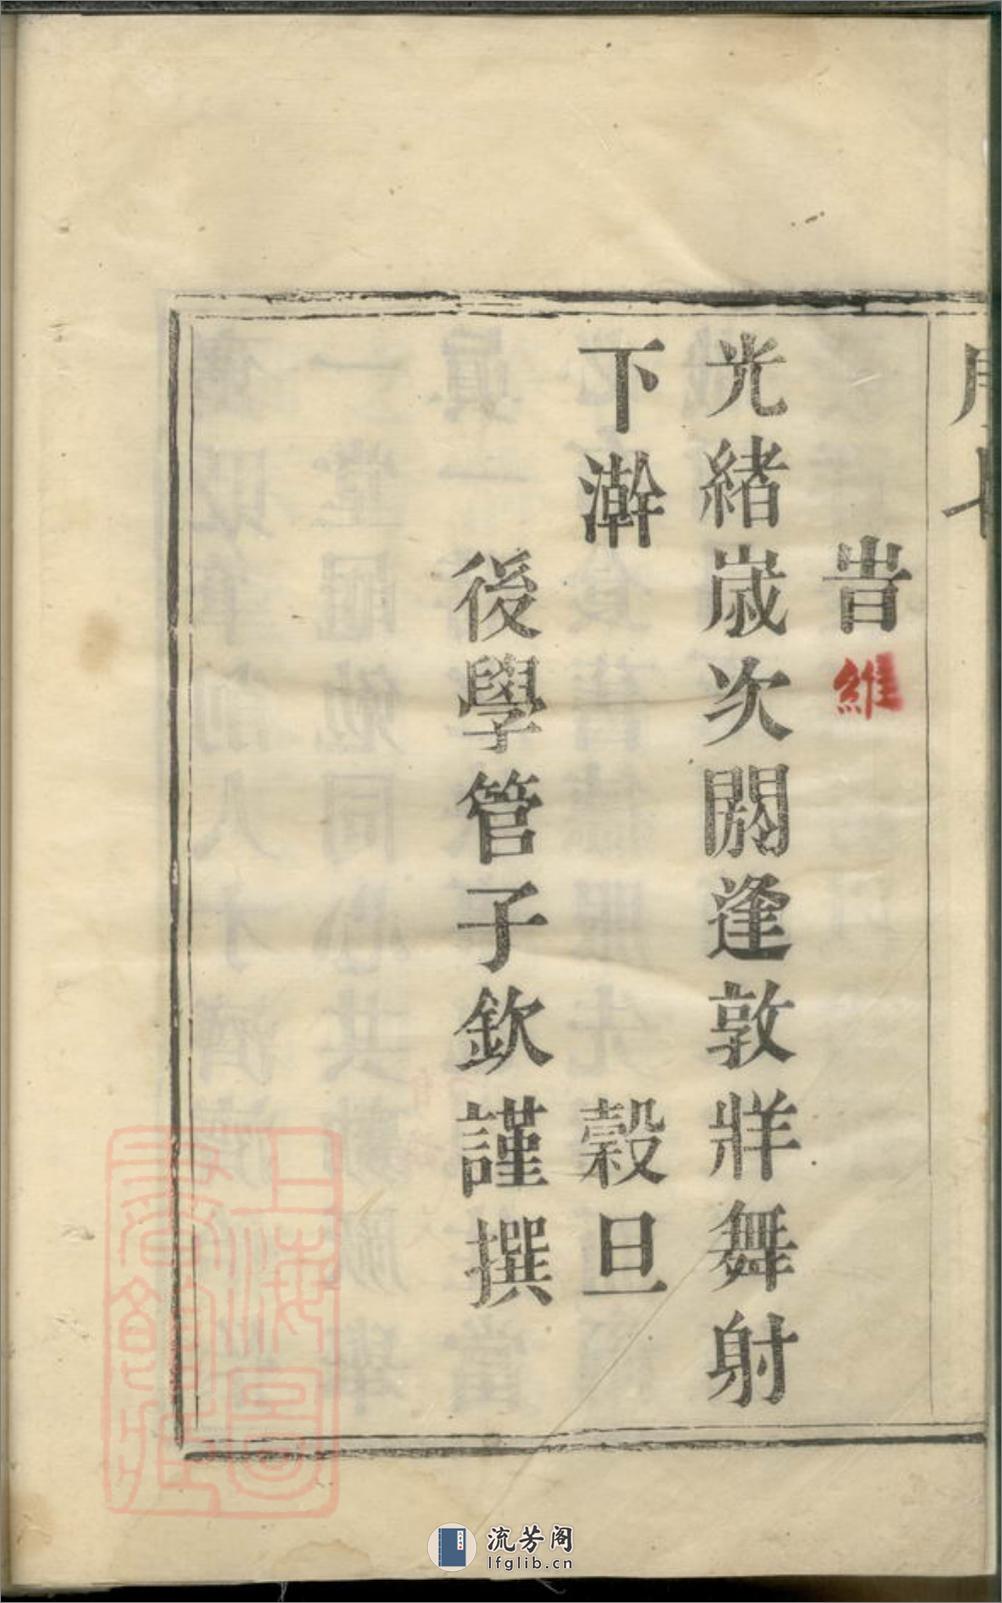 旹維
光緒嵗次閼逢敦牂舞射
下澣 穀旦
後學管子欽謹撰
上海圖
書館藏
流芳阁
lfglib.cn